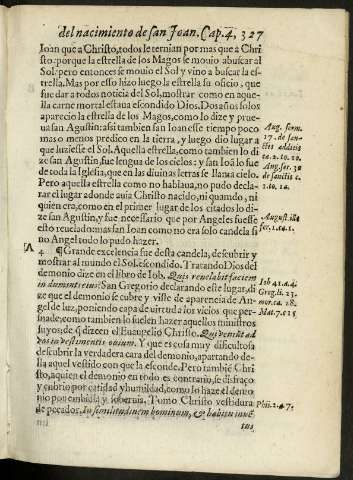 del nacimiento de san Ioan. Cap. 4. 327
Ioan que a Christo, todos le ternian por mas que a Chri
sto: porque la estrella de los Magos se mouio abuscar al
Sol: pero entonces se mouio el Sol y vino a buscar la es-
trella. Mas por esso hizo luego la estrella su oficio, que
fue dar a todos noticia del Sol, mostrar como en aque-
lla carne mortal estaua escondido Dios. Dos años solos
aparecio la estrella de los Magos, como lo dize y prue-
ua san Agustin: assi tambien san Ioan esse tiempo poco
mas o menos predico en la tierra, y luego dio lugar a
que luziesse el Sol. Aquella estrella, como tambien lo di
ze san Agustin, fue lengua de los cielos: y san Ioã lo fue
de toda la Iglesia, que en las diuinas letras se llama cielo.
Pero aquella estrella como no hablaua, no pudo decla-
rar el lugar adonde auia Christo nacido, ni quando, ni
quien era, como en el primer lugar de los citados lo di-
ze san Agustin, y fue necessario que por Angeles fuesse
esto reuelado: mas san Ioan como no era solo candela si
no Angel todo lo pudo hazer.
4 ¶ Grande excelencia fue desta candela, descubrir y
mostrar al mundo el Sol escondido. Tratando Dios del
demonio dize en el libro de Iob. Quis reuelabit faciem
indumenti eius? San Gregorio declarando este lugar, di
ze que el demonio se cubre y viste de aparencia de An-
gel de luz, poniendo capa de virtud a los vicios que per-
suade, como tambien lo suelen hazer aquellos ministros
suyos, de q̃ dize en el Euangelio Christo. Qui veniũt ad
vos in vestimentis ouium. Y que es cosa muy dificultosa
descubrir la verdadera cara del demonio, apartando de-
lla aquel vestido con que la esconde. Pero tambiẽ Chri
sto, aquien el demonio en todo es contrario, se disfraço
y cubrio por caridad y humildad, como lo haze el demo
nio por embidia y soberuia. Tomo Christo vestidura
de pecador, In similitudinem hominum, & habitu inuē
tus
Aug. serm.
Iob 41.a.4.
Greg. li. 33.
Mat. 7. c 15
Phil. 2. a 7.